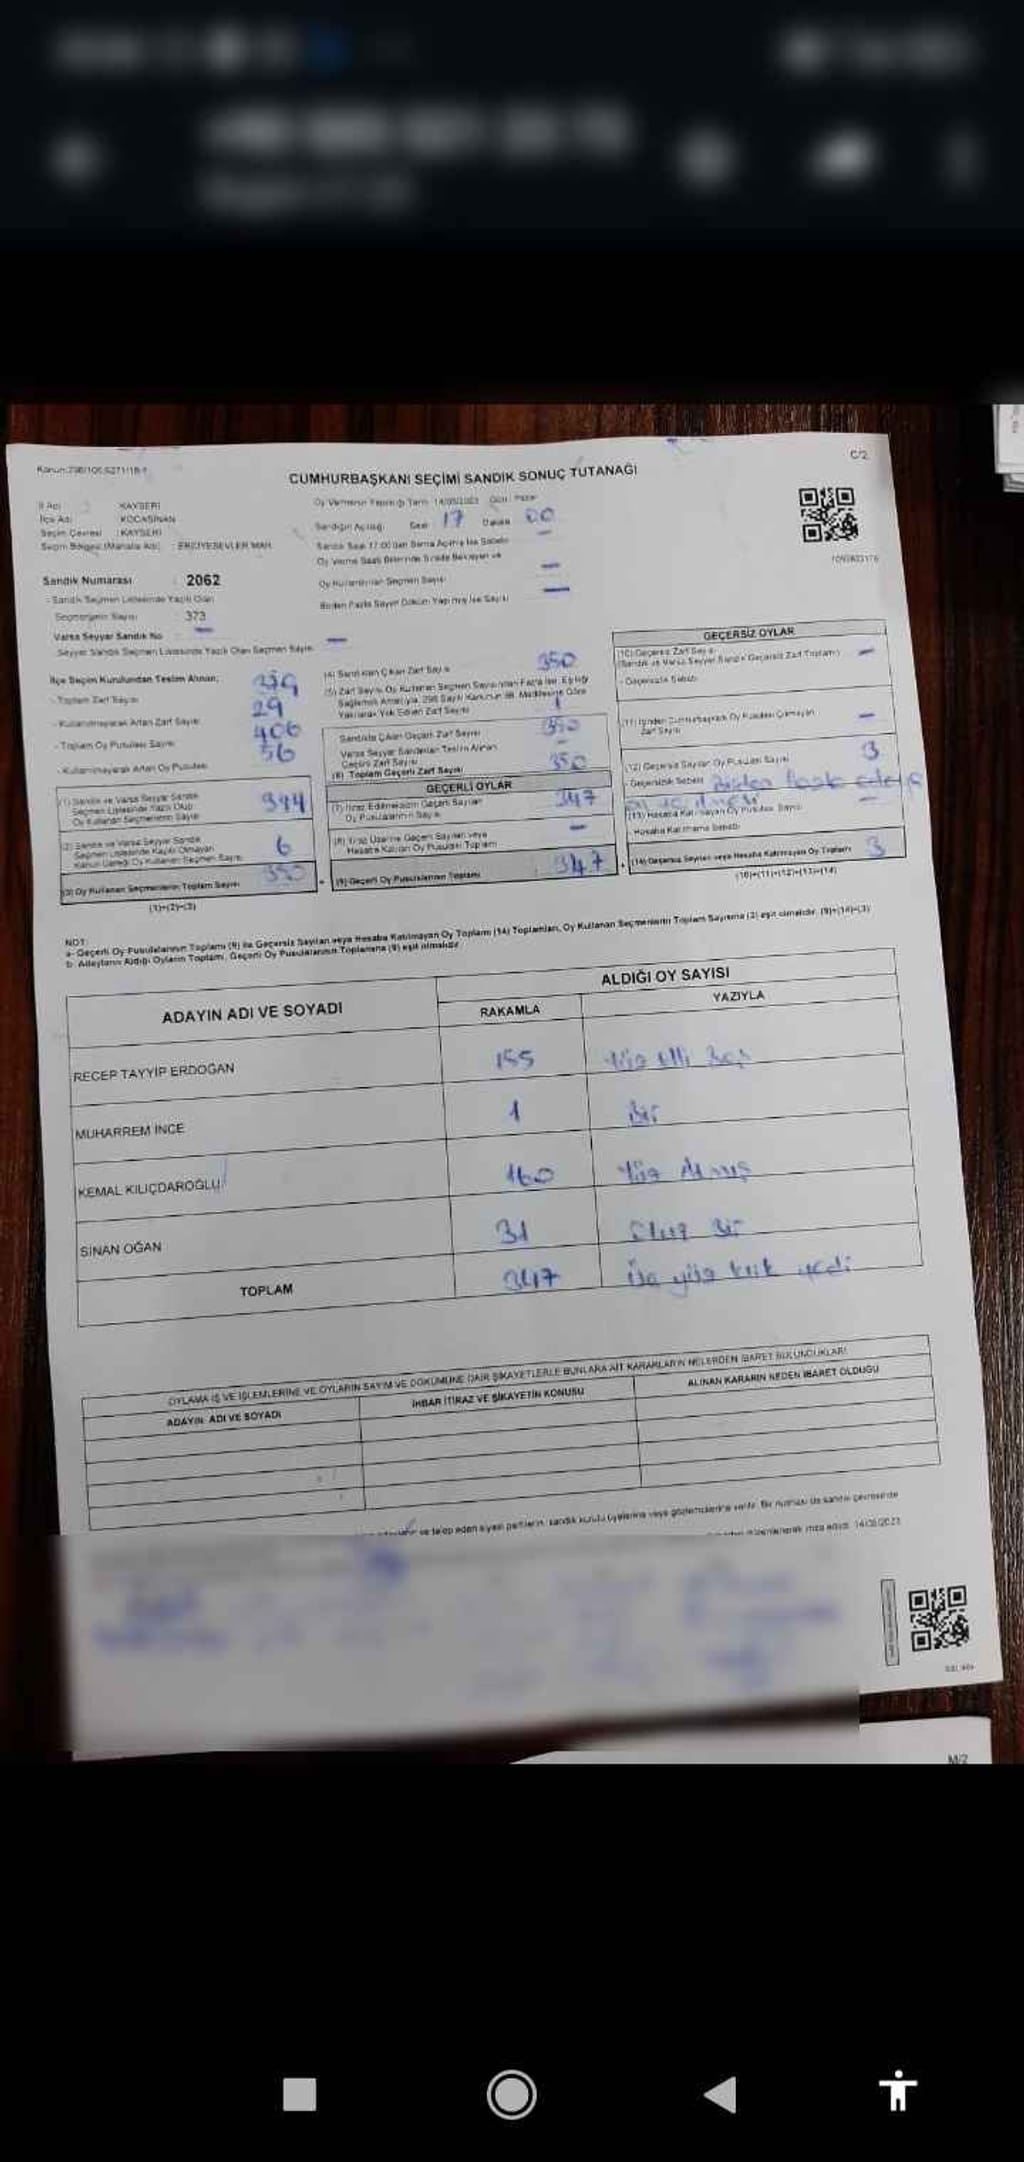 C/2
Kanun:298/105,6271/18-1
CUMHURBAŞKANI SEÇİMİ SANDIK SONUÇ TUTANAĞI
İl Adı : KAYSERİ
İlçe Adı : KOCASİNAN
Seçim Çevresi : KAYSERİ
Seçim Bölgesi (Mahalle Adı) : ERCİYESEVLER MAH.
Oy Vermenin Yapıldığı Tarih 14/05/2023 Gün: Pazar
Sandığın Açıldığı Saat 17 Dakika 00
Sandık Saat 17:00'den Sonra Açılmış İse Sebebi
Oy Verme Saati Bitiminde Sırada Bekleyen ve
Oy Kullandırılan Seçmen Sayısı —
Birden Fazla Sayım Döküm Yapılmış İse Sayısı —
Sandık Numarası : 2062
- Sandık Seçmen Listesinde Yazılı Olan
Seçmenlerin Sayısı 373
Varsa Seyyar Sandık No —
Seyyar Sandık Seçmen Listesinde Yazılı Olan Seçmen Sayısı —
İlçe Seçim Kurulundan Teslim Alınan;
- Toplam Zarf Sayısı
- Kullanılmayarak Artan Zarf Sayısı 29
- Toplam Oy Pusulası Sayısı 406
- Kullanılmayarak Artan Oy Pusulası 56
(1) Sandık ve Varsa Seyyar Sandık
Seçmen Listesinde Yazılı Olup
Oy Kullanan Seçmenlerin Sayısı 344
(2) Sandık ve Varsa Seyyar Sandık
Seçmen Listesinde Kayıtlı Olmayan
Kanun Gereği Oy Kullanan Seçmen Sayısı 6
(3) Oy Kullanan Seçmenlerin Toplam Sayısı 350
(1)+(2)=(3)
(4) Sandıktan Çıkan Zarf Sayısı 350
(5) Zarf Sayısı Oy Kullanan Seçmen Sayısından Fazla İse, Eşitliği
Sağlamak Amacıyla, 298 Sayılı Kanunun 98. Maddesine Göre
Yakılarak Yok Edilen Zarf Sayısı
Sandıkta Çıkan Geçerli Zarf Sayısı 350
Varsa Seyyar Sandıktan Teslim Alınan
Geçerli Zarf Sayısı —
(6) Toplam Geçerli Zarf Sayısı 350
GEÇERLİ OYLAR
(7) İtiraz Edilmeksizin Geçerli Sayılan
Oy Pusulalarının Sayısı 347
(8) İtiraz Üzerine Geçerli Sayılan veya
Hesaba Katılan Oy Pusulası Toplamı —
(9) Geçerli Oy Pusulalarının Toplamı 347
GEÇERSİZ OYLAR
(10) Geçersiz Zarf Sayısı —
(Sandık ve Varsa Seyyar Sandık Geçersiz Zarf Toplamı)
- Geçersizlik Sebebi
(11) İçinden Cumhurbaşkanı Oy Pusulası Çıkmayan
Zarf Sayısı —
(12) Geçersiz Sayılan Oy Pusulası Sayısı 3
- Geçersizlik Sebebi Birden fazla adaya
(13) Hesaba Katılmayan Oy Pusulası Sayısı —
- Hesaba Katılmama Sebebi
(14) Geçersiz Sayılan veya Hesaba Katılmayan Oy Toplamı 3
(10)+(11)+(12)+(13)=(14)
NOT:
a- Geçerli Oy Pusulalarının Toplamı (9) ile Geçersiz Sayılan veya Hesaba Katılmayan Oy Toplamı (14) Toplamları, Oy Kullanan Seçmenlerin Toplam Sayısına (3) eşit olmalıdır. (9)+(14)=(3)
b- Adayların Aldığı Oyların Toplamı, Geçerli Oy Pusulalarının Toplamına (9) eşit olmalıdır.
ADAYIN ADI VE SOYADI ALDIĞI OY SAYISI
RAKAMLA YAZIYLA
RECEP TAYYİP ERDOĞAN 155 Yüz elli beş
MUHARREM İNCE 1 Bir
KEMAL KILIÇDAROĞLU 160 Yüz Altmış
SİNAN OĞAN 31 Otuz Bir
TOPLAM 347 Üç yüz kırk yedi
OYLAMA İŞ VE İŞLEMLERİNE VE OYLARIN SAYIM VE DÖKÜMÜNE DAİR ŞİKAYETLERLE BUNLARA AİT KARARLARIN NELERDEN İBARET BULUNDUKLARI
ADAYIN ADI VE SOYADI İHBAR İTİRAZ VE ŞİKAYETİN KONUSU ALINAN KARARIN NEDEN İBARET OLDUĞU
ve talep eden siyasi partilerin, sandık kurulu üyelerine veya gözlemcilerine verilir. Bir nüshası da sandık çevresinde
düzenlenerek imza edildi. 14/05/2023
M/2